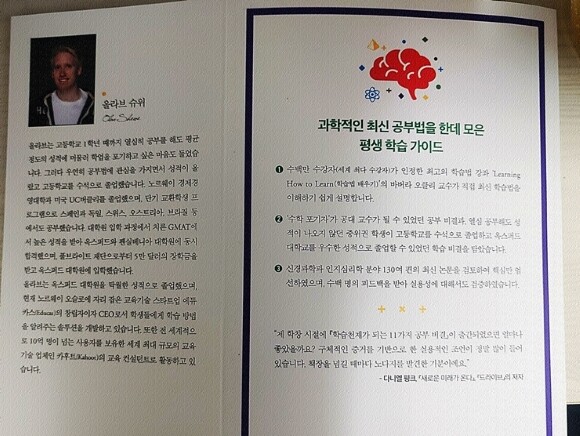 올라브 슈위
올라브는 고등학교 1학년 때까지 열심히 공부를 해도 평균
정도의 성적에 머물러 학업을 포기하고 싶은 마음도 들었습
니다. 그러다 우연히 공부법에 관심을 가지면서 성적이 올
랐고 고등학교를 수석으로 졸업했습니다. 노르웨이 경제경
영대학과 미국 UC버클리를 졸업했으며, 단기 교환학생 프
로그램으로 스페인과 독일, 스위스, 오스트리아, 브라질 등
에서도 공부했습니다. 대학원 입학 과정에서 치른 GMAT에
서 높은 성적을 받아 옥스퍼드와 펜실베니아 대학원에 동시
합격했으며, 풀브라이트 재단으로부터 5만 달러의 장학금을
받고 옥스퍼드 대학원에 입학했습니다.
올라브는 옥스퍼드 대학원을 탁월한 성적으로 졸업했으며,
현재 노르웨이 오슬로에 자리 잡은 교육기술 스타트업 에듀
카스(Educas)의 창립자이자 CEO로서 학생들에게 학습 방법
을 알려주는 솔루션을 개발하고 있습니다. 또한 전 세계적으
로 10억 명이 넘는 사용자를 보유한 세계 최대 규모의 교육기
술 업체인 카후트(Kahoot)의 교육 컨설턴트로 활동하고 있
습니다.
과학적인 최신 공부법을 한데 모은
평생 학습 가이드
❶ 수백만 수강자(세계 최다 수강자)가 인정한 최고의 학습법 강좌 'Learning
How to Learn(학습법 배우기)'의 바버라 오클리 교수가 직접 최신 학습법을
이해하기 쉽게 설명합니다.
❷ '수학 포기자'가 공대 교수가 될 수 있었던 공부 비결과, 열심 공부해도 성
적이 나오지 않던 중위권 학생이 고등학교를 수석으로 졸업하고 옥스퍼드
대학교를 우수한 성적으로 졸업할 수 있었던 학습 비결을 담았습니다.
❸ 신경과학과 인지심리학 분야 130여 편의 최신 논문을 검토하여 핵심만 엄
선하였으며, 수백 명의 피드백을 받아 실용성에 대해서도 검증하였습니다.
"제 학창 시절에 『학습천재가 되는 11가지 공부 비결』이 출간되었으면 얼마나
좋았을까요? 구체적인 증거를 기반으로 한 실용적인 조언이 정말 많이 들어
있습니다. 책장을 넘길 때마다 노다지를 발견한 기분이에요."
- 다니엘 핑크, 『새로운 미래가 온다』, 『드라이브』의 저자